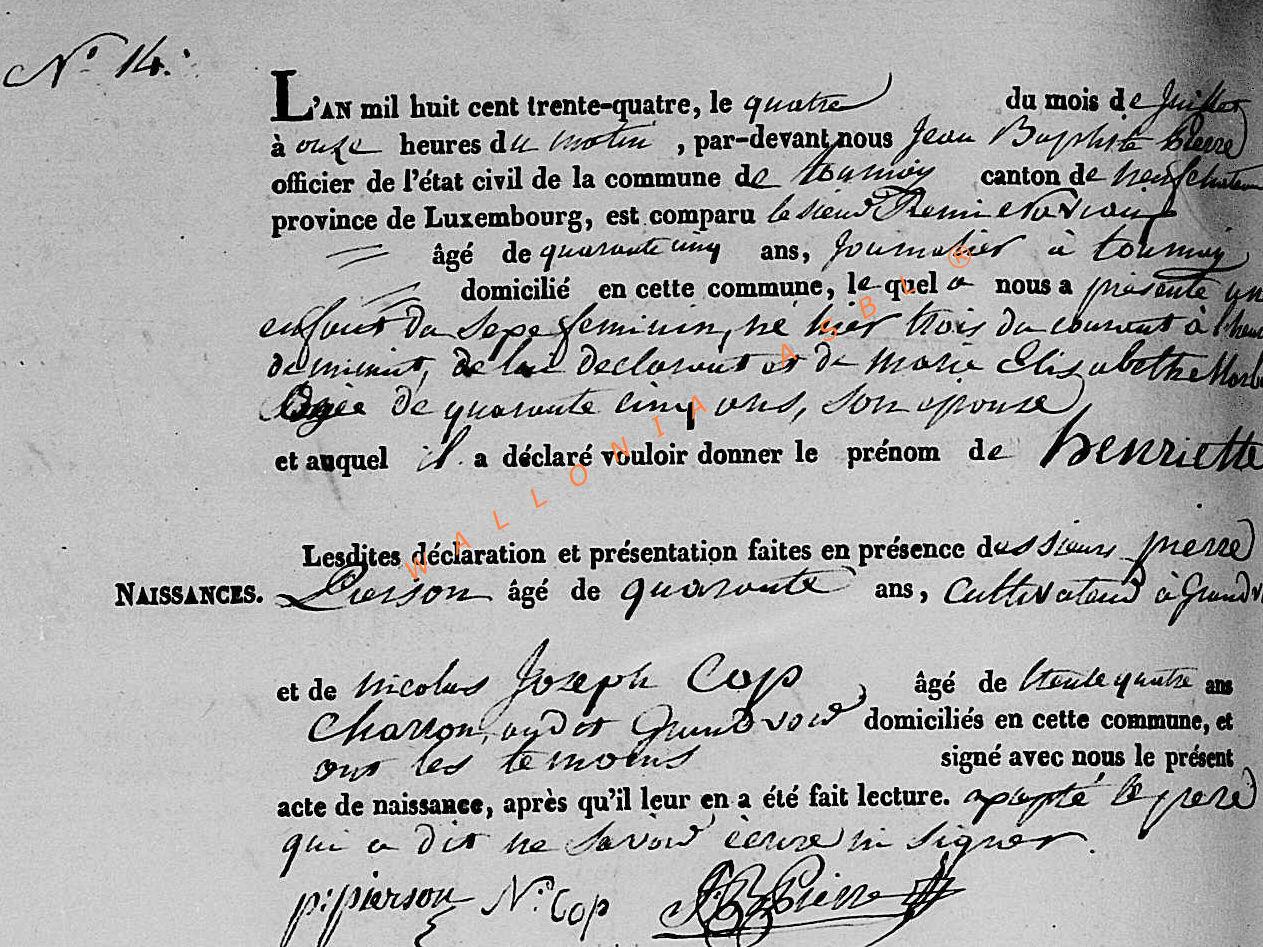 N° 14.
L'AN mil huit cent trente-quatre, le quatre du mois de Juillet
à onze heures du matin, par-devant nous Jean Baptiste Pierre
officier de l'état civil de la commune de tournay canton de neufchateau
province de Luxembourg, est comparu le sieur Remi
âgé de quarante cinq ans, Journalier à tournay
domicilié en cette commune, lequel a nous a présenté un
enfant du Sexe feminin, né hier trois du courant à l'heure
de minuit, de lui declarant et de marie Elisabethe
Agée de quarante cinq ans, son epouse
et auquel il a déclaré vouloir donner le prénom de henriette
Lesdites déclaration et présentation faites en présence des sieurs pierre
NAISSANCES. Pierson âgé de quarante ans, Cultivateur à Grandv
et de nicolas Joseph Cop, âgé de trente quatre ans
Charron, audit Grandvoir domiciliés en cette commune, et
ont les temoins signé avec nous le présent
acte de naissance, après qu'il leur en a été fait lecture. excepté le pere
qui a dit ne savoir écrire ni signer.
p: pierson N: Cop J B Pierre
WALLONIA ASBL ®